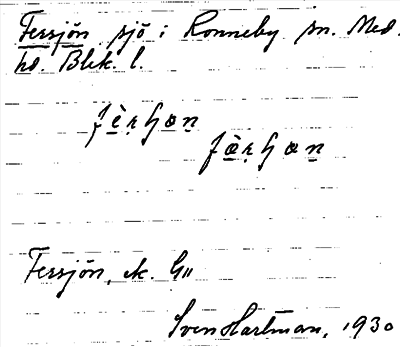 Fersjön sjö i Ronneby sn. Med.
hd. Blek. l.
Fersjön, ek. G11
Sven Hartman, 1930